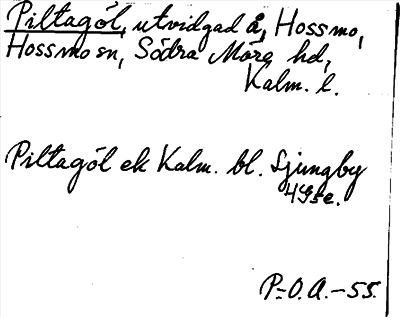 Piltagöl, utvidgad å, Hossmo,
Hossmo sn, Södra Möre hd,
Kalm. l.
Piltagöl ek Kalm. bl. Ljungby
4Gse.
P-O.A.-55.